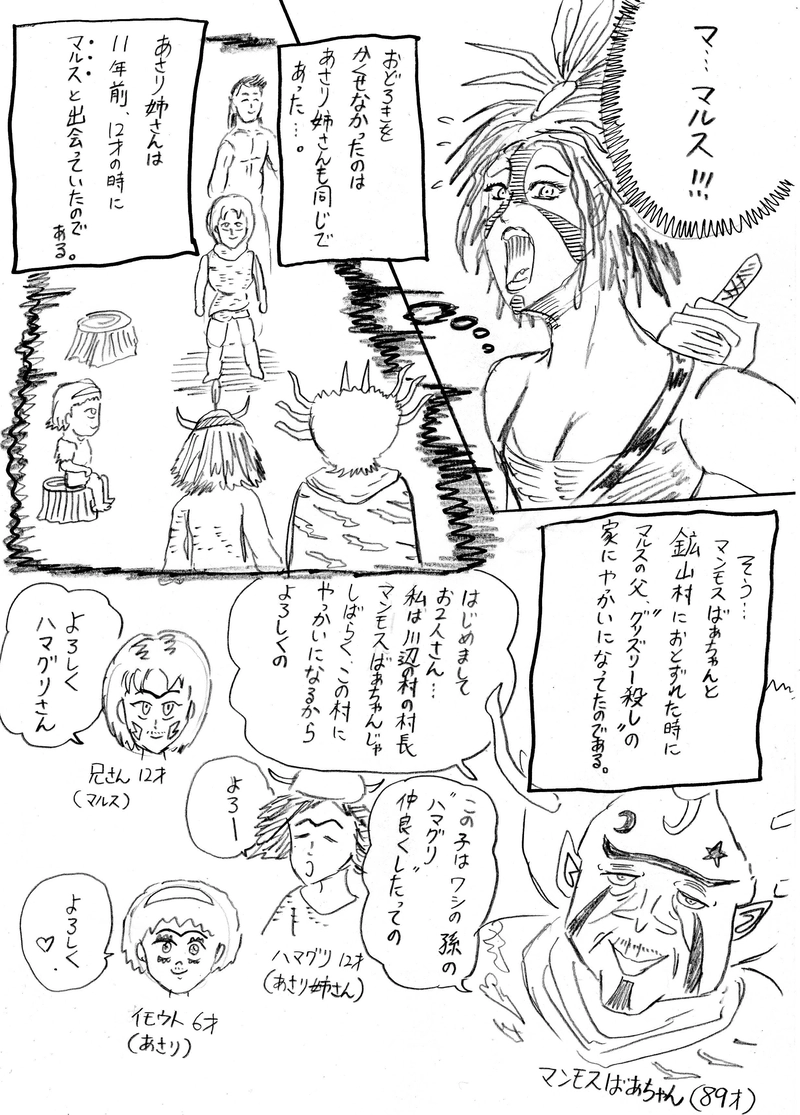 マ…マルス!!!
おどろきを
かくせなかったのは
あさり姉さんも同じで
あった…。
あさり姉さんは
11年前、12才の時に
マルスと出会っていたので
ある。
そう…
マンモスばぁちゃんと
鉱山村におとずれた時に
マルスの父、“グリズリー殺し”の
家にやっかいになってたのである。
はじめまして
お2人さん…
私は川辺の村の村長
マンモスばぁちゃんじゃ
しばらく、この村に
やっかいになるから
よろしくの
よろしく
ハマグリさん
兄さん 12才
(マルス)
この子はワシの孫の
“ハマグリ”
仲良くしたっての
よろー
ハマグリ 12才
(あさり姉さん)
よろしく
♡.
イモウト 6才
(あさり)
マンモスばあちゃん (89才)